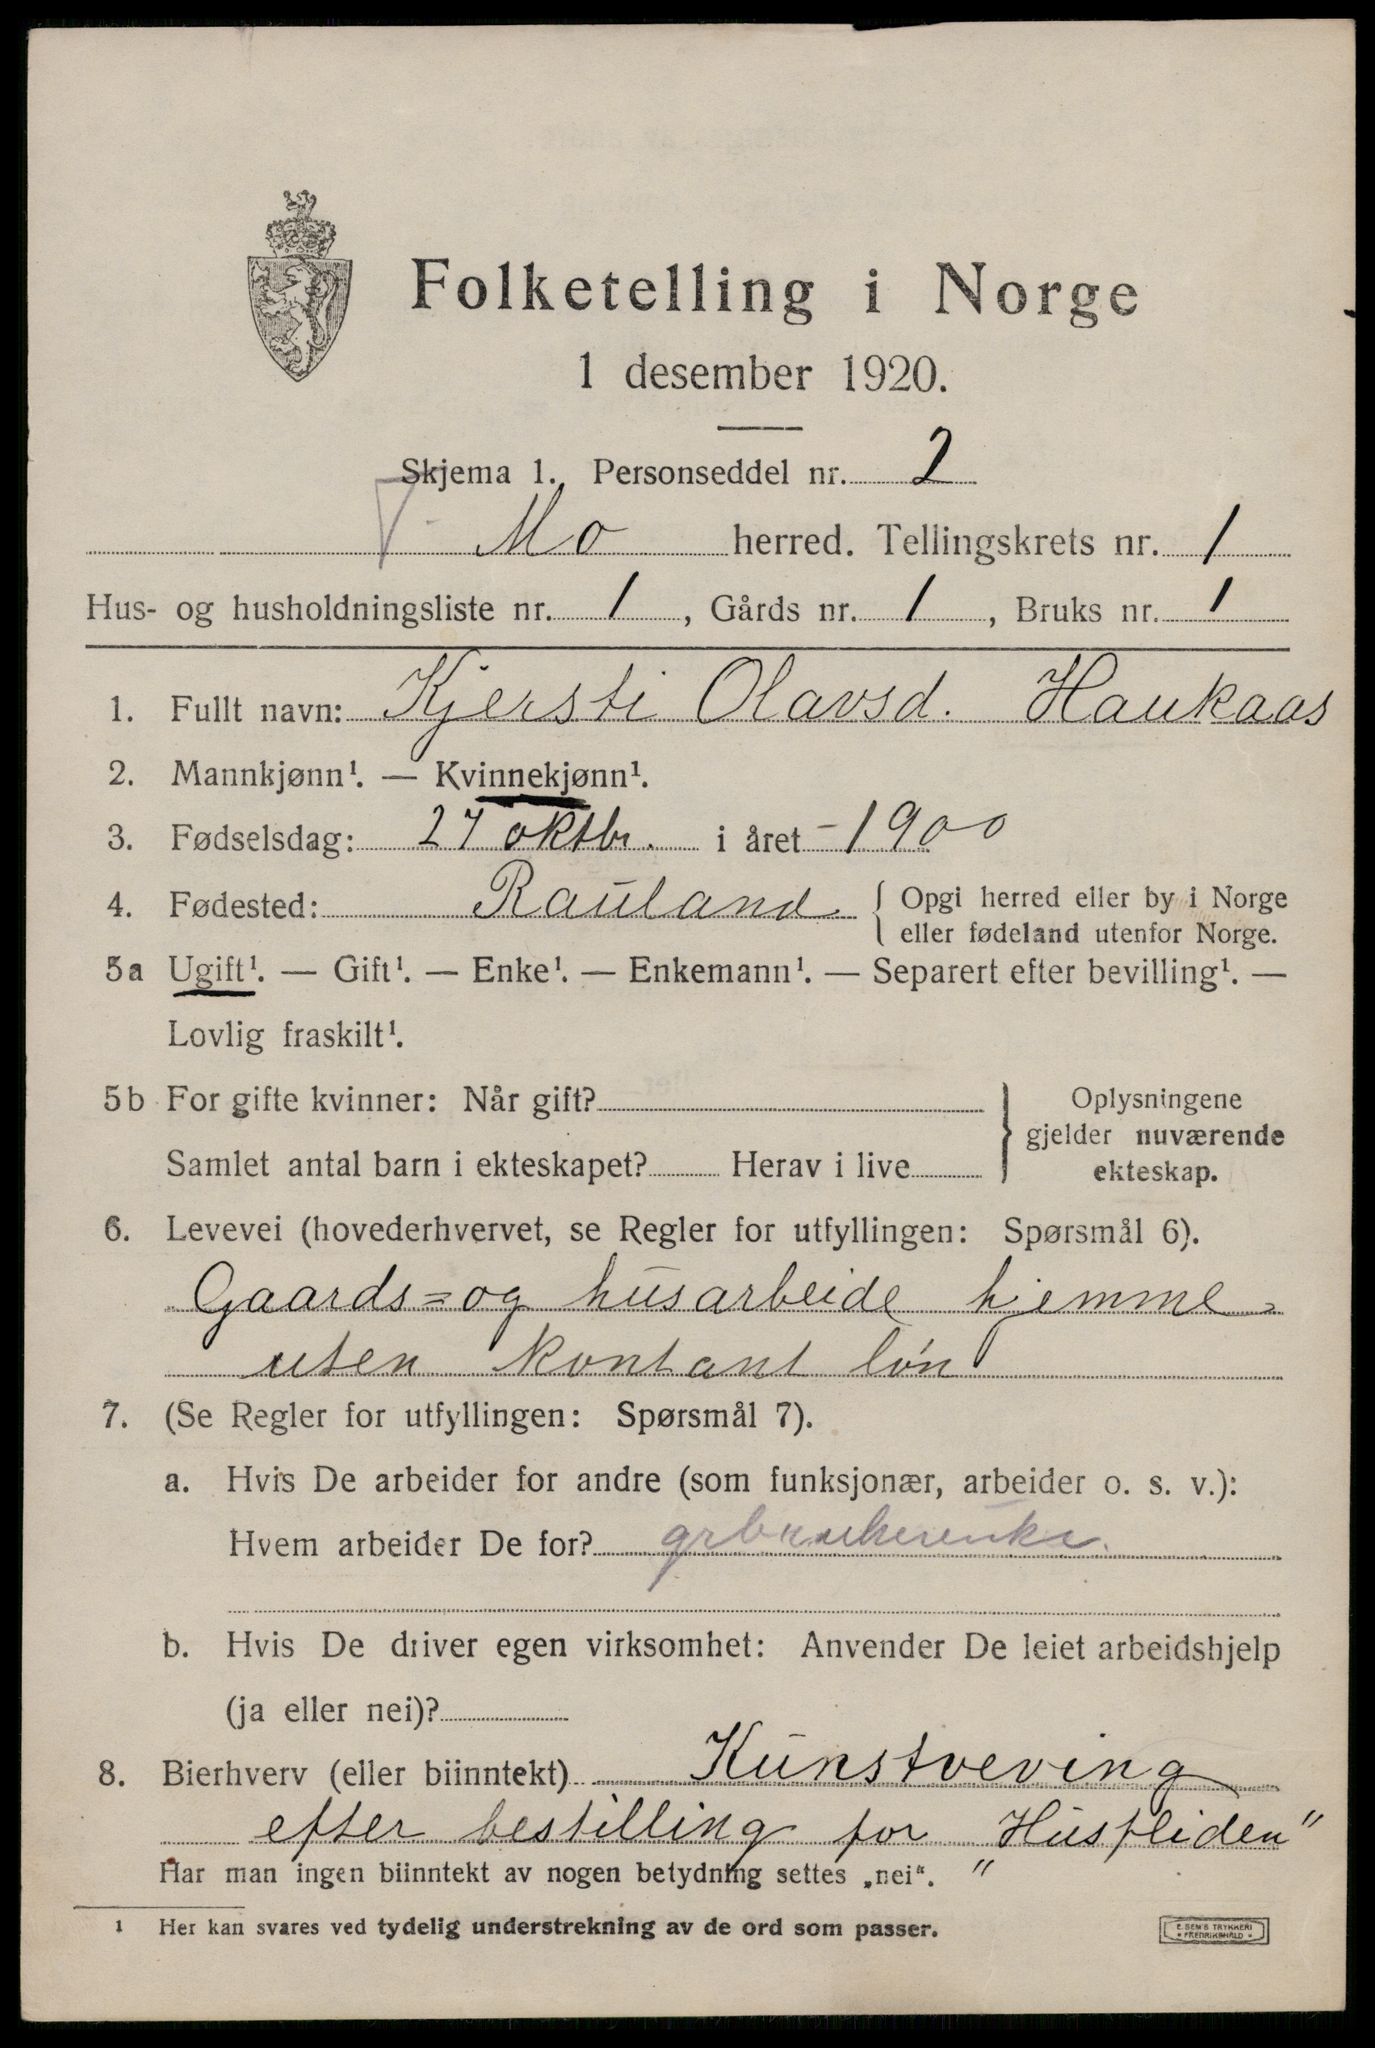 Folketelling i Norge
1 desember 1920.
Skjema 1. Personseddel nr. 2
Mo herred. Tellingskrets nr. 1
Hus- og husholdningsliste nr. 1, Gårds nr. 1, Bruks nr. 1
1. Fullt navn: Kjersti Olavsd. Haukaas
2. Mannkjønn¹. — Kvinnekjønn¹.
3. Fødselsdag: 27 oktbr. i året 1900
4. Fødested: Rauland { Opgi herred eller by i Norge
eller fødeland utenfor Norge.
5a Ugift¹. — Gift¹. — Enke¹. — Enkemann¹. — Separert efter bevilling¹. —
Lovlig fraskilt¹.
5b For gifte kvinner: Når gift?
Samlet antal barn i ekteskapet? Herav i live
} Oplysningene
gjelder nuværende
ekteskap.
6. Levevei (hovederhvervet, se Regler for utfyllingen: Spørsmål 6).
Gaards= og husarbeide hjemme
uten kontant løn
7. (Se Regler for utfyllingen: Spørsmål 7).
a. Hvis De arbeider for andre (som funksjonær, arbeider o. s. v.):
Hvem arbeider De for?
b. Hvis De driver egen virksomhet: Anvender De leiet arbeidshjelp
(ja eller nei)?
8. Bierhverv (eller biinntekt) Kunstveving
efter bestilling for „Husfliden"
Har man ingen biinntekt av nogen betydning settes „nei“.
¹ Her kan svares ved tydelig understrekning av de ord som passer.
E. SEM'S TRYKKERI
• FREDRIKSHALD •